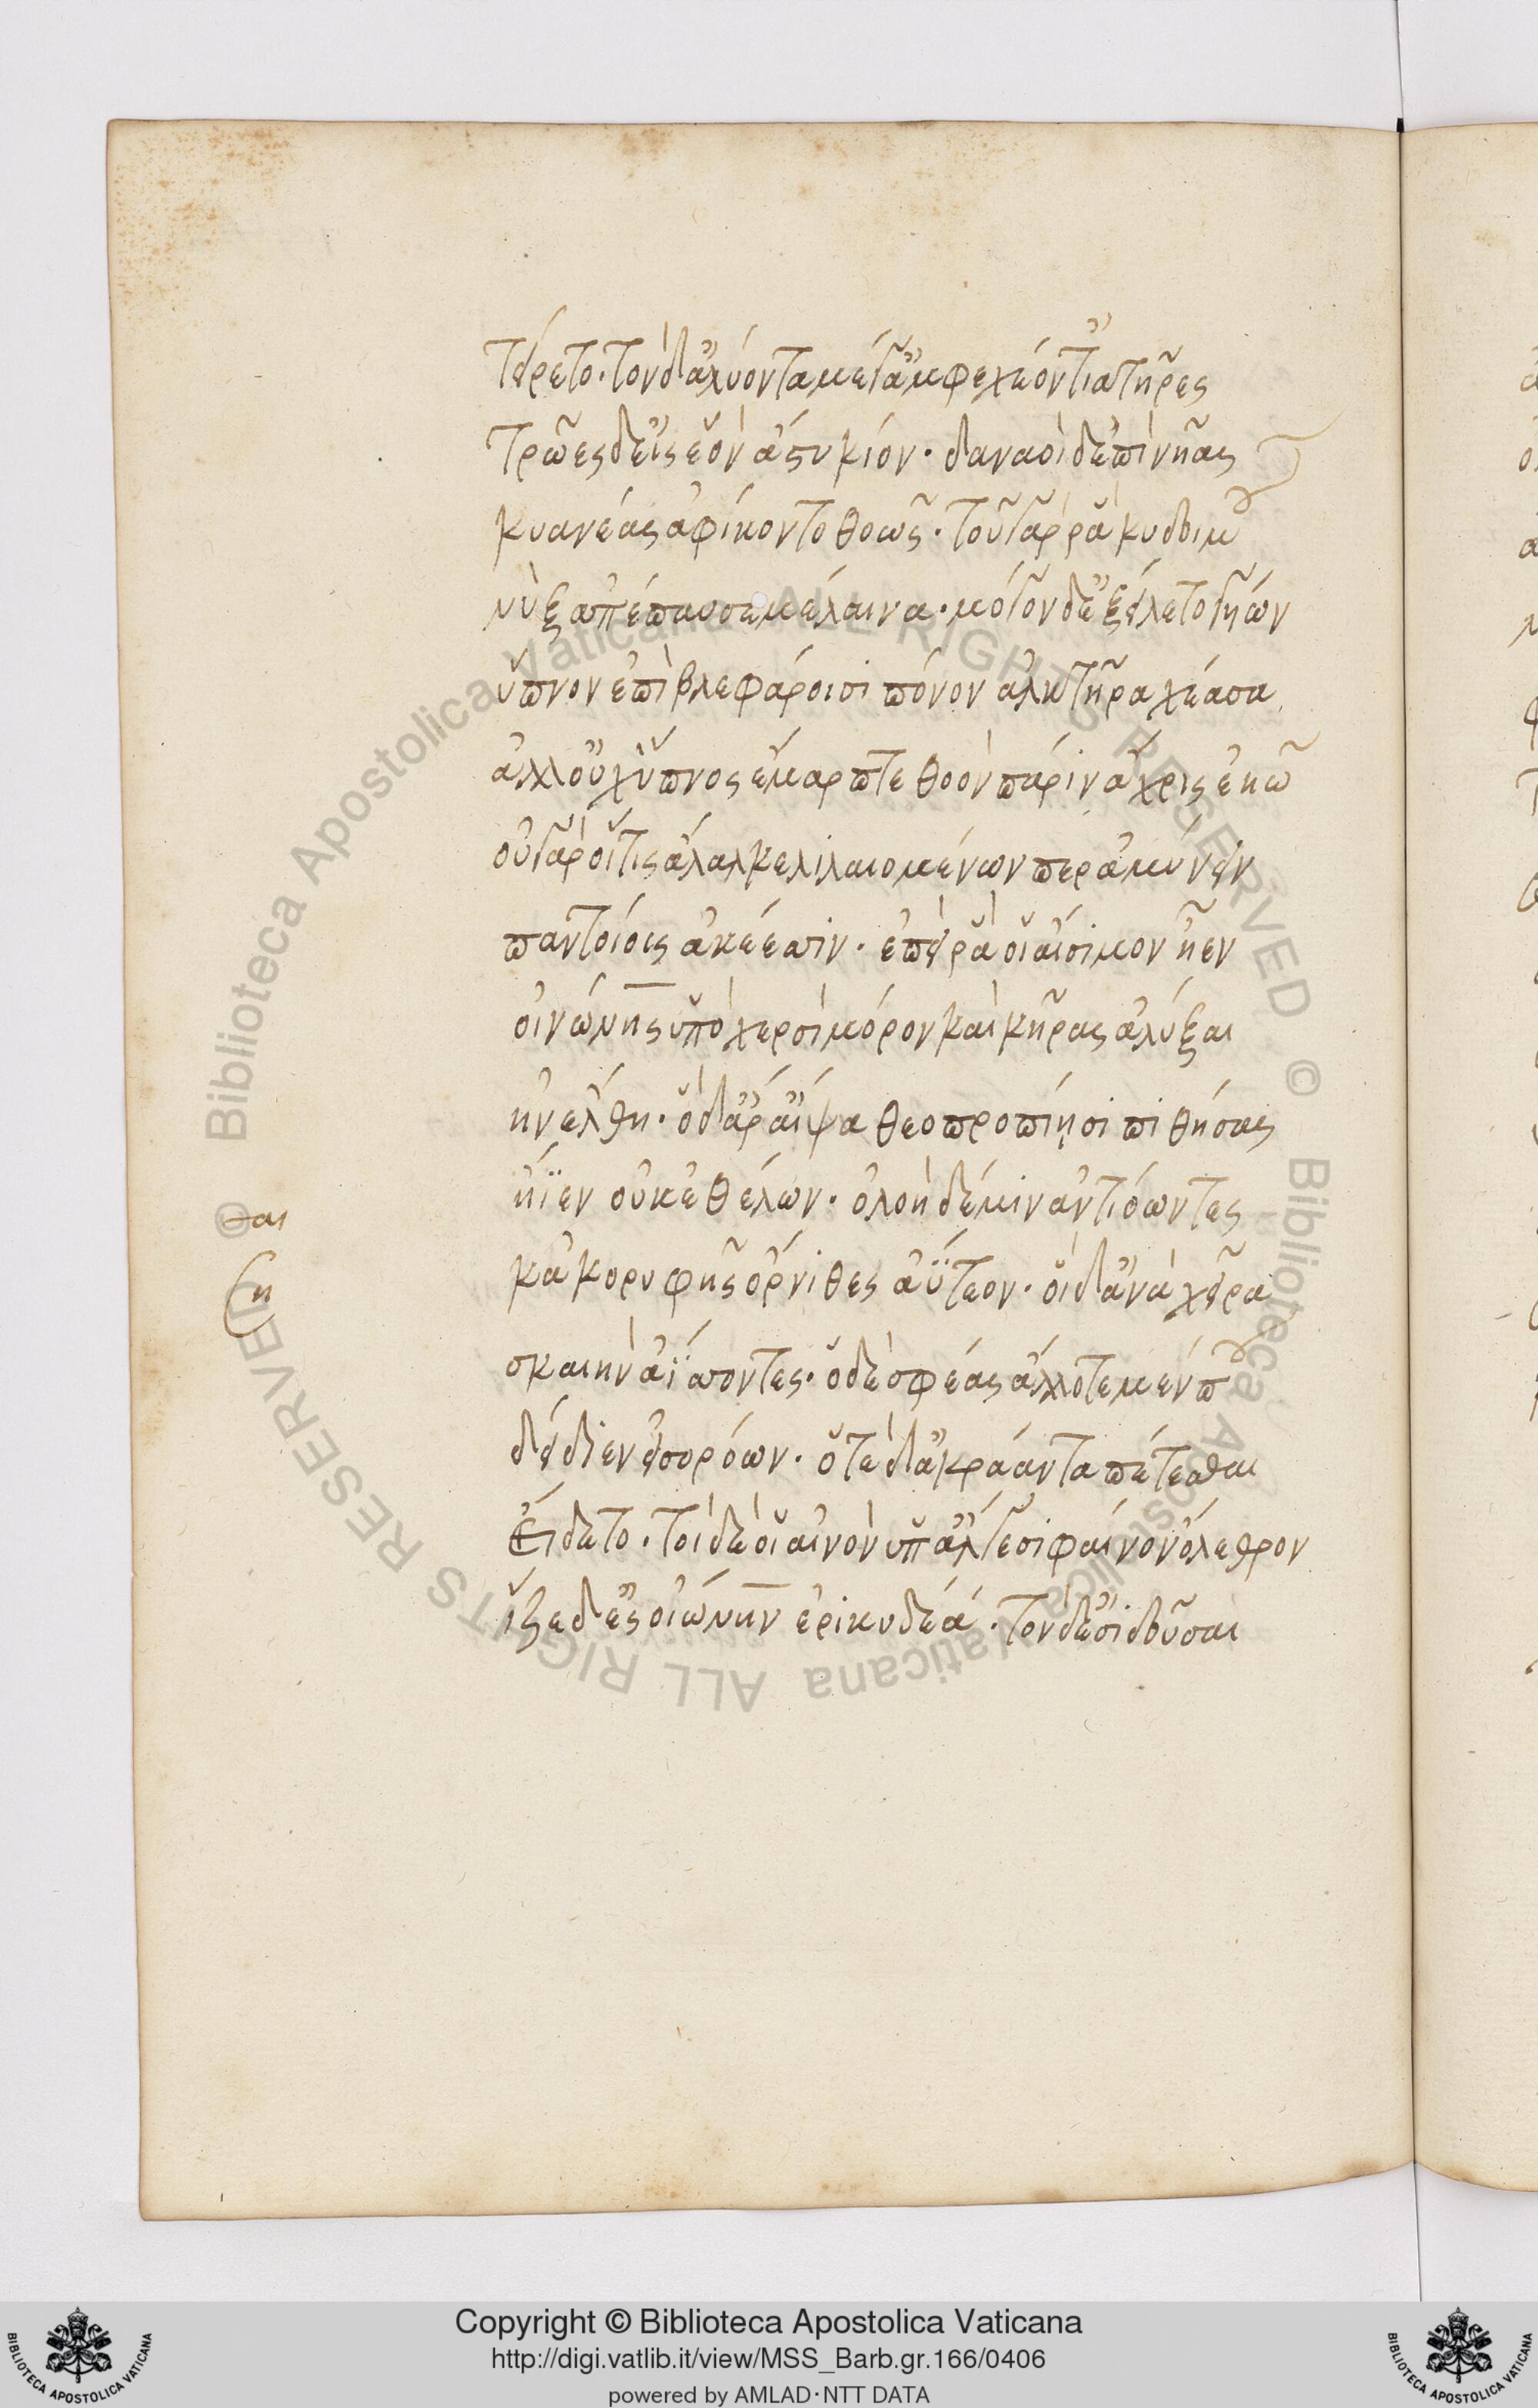 τείρετο· τὸν δ' ἀλύοντα μέγ' ἀμφεχέοντ' ἰατῆρες
Τρῶες δ' εἰς ἑὸν ἄστυ κίον· δαναοὶ δ' ἐπὶ νῆας
κυανέας ἀφίκοντο θοῶς· τοὺς γάρ ῥα κυδοιμοῦ
νὺξ ἀπέπαυσε μέλαινα· μόγον δ' ἐξείλετο γυίων
ὕπνον ἐπὶ βλεφάροισι πόνον ἀλκτῆρα χέασα
ἀλλ' οὐχ ὕπνος ἔμαρπτε θοὸν πάριν ἄχρις ἐπ' ἠῶ
οὐ γάρ οἵ τις ἄλαλκε λιλαιομένων περ ἀμύνειν
παντοίοις ἀκέεσσιν· ἐπεί ῥά οἱ αἴσιμον ἦεν
οἰνώνης ὑπὸ χερσὶ μόρον καὶ κῆρας ἀλύξαι
ἢν ἐλθῃ· ὁ δ' ἄρ' αἶψα θεοπροπίῃσι πιθήσας
ἤϊεν οὐκ ἐθέλων· ὀλοὴ δέ μιν ἀντιόωντες
κὰκ κορυφῆς ὄρνιθες ἀΰτεον· οἱ δ' ἀνὰ χεῖρα
σκαιὴν ἀΐσσοντες· ὁ δέ σφέας ἄλλοτε μέν που
δείδιεν εἰσορόων· ὁτὲ δ' ἀκράαντα πέτεσθαι
ἔλδετο· τοὶ δέ οἱ αἰνὸν ὑπ' ἄλγεσι φαῖνον ὄλεθρον
ἷξε δ' ἐς οἰνώνην ἐρικυδέα· τὸν δ' ἐσιδοῦσαι
αι
η
Copyright © Biblioteca Apostolica Vaticana
http://digi.vatlib.it/view/MSS_Barb.gr.166/0406
powered by AMLAD·NTT DATA
BIBLIOTECA APOSTOLICA VATICANA
BIBLIOTECA APOSTOLICA VATICANA
© Biblioteca Apostolica Vaticana ALL RIGHTS RESERVED © Biblioteca Apostolica Vaticana ALL RIGHTS RESERVED